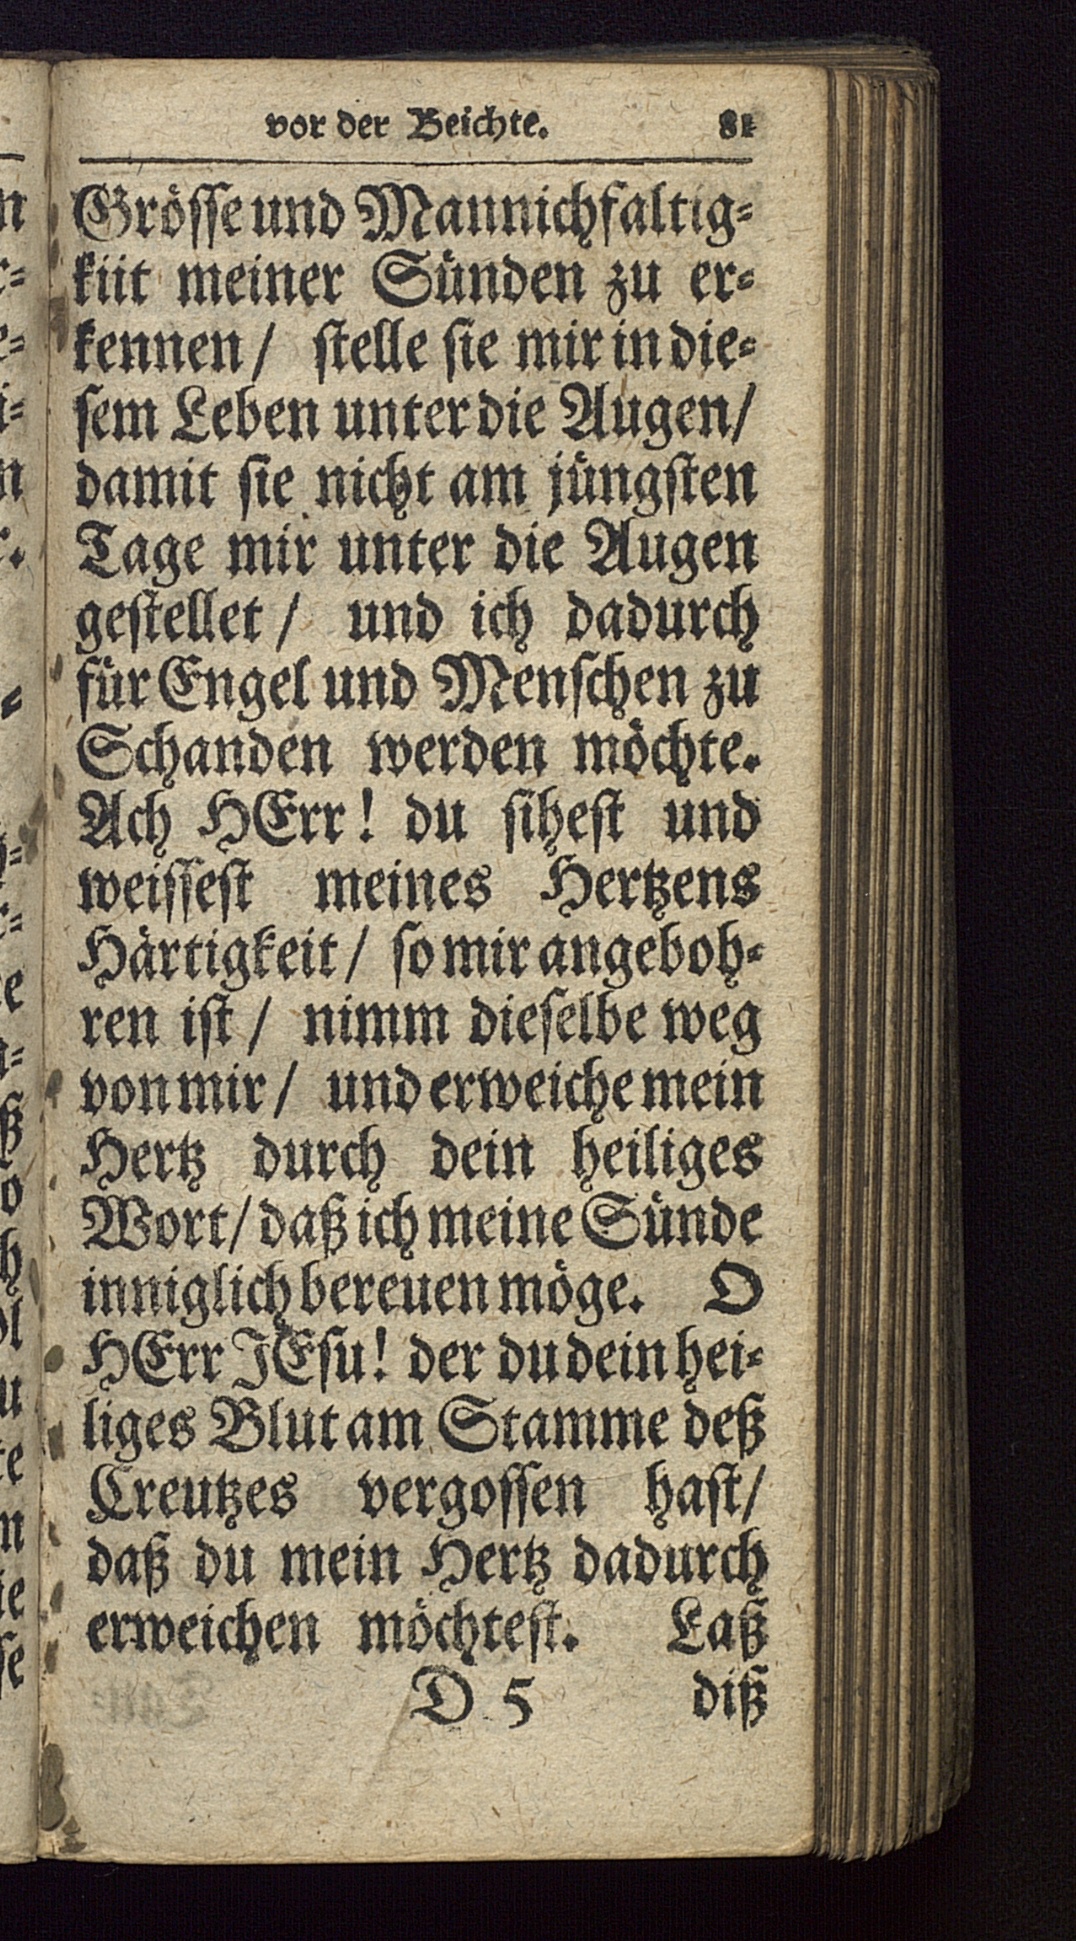 vor der Beichte. 81
Grösse und Mannichfaltig-
kiit meiner Sünden zu er-
kennen/ stelle sie mir in die-
sem Leben unter die Augen/
damit sie nicht am jüngsten
Tage mir unter die Augen
gestellet/ und ich dadurch
für Engel und Menschen zu
Schanden werden möchte.
Ach HErr! du sihest und
weissest meines Hertzens
Härtigkeit/ so mir angeboh-
ren ist/ nimm dieselbe weg
von mir/ und erweiche mein
Hertz durch dein heiliges
Wort/ daß ich meine Sünde
inniglich bereuen möge. O
HErr JEsu! der du dein hei-
liges Blut am Stamme deß
Creutzes vergossen hast/
daß du mein Hertz dadurch
erweichen möchtest. Laß
D 5 diß